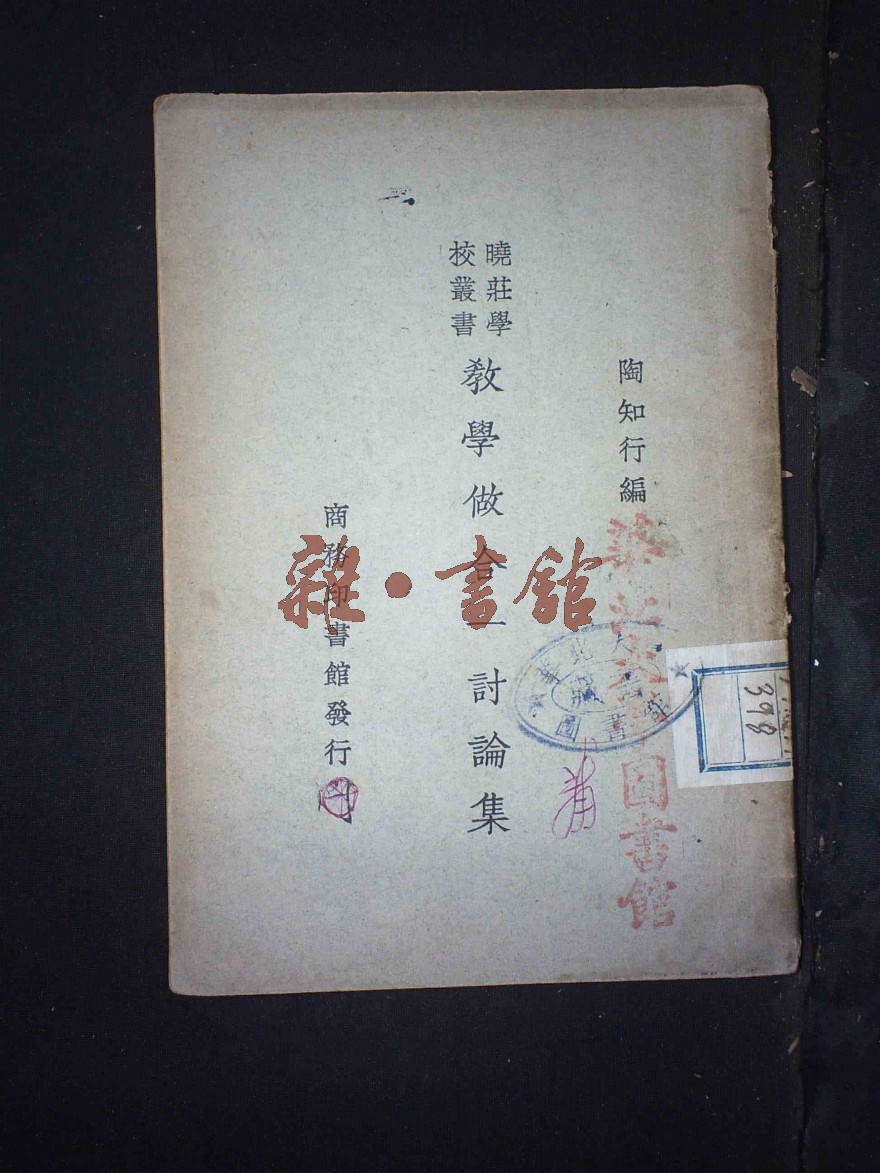 陶知行編
曉莊學
校叢書
教學做合一討論集
商務印書館發行
雜·書館
圖書館
398